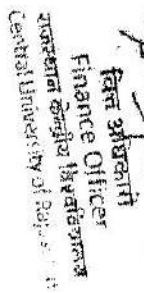 वित्त अधिकारी
Finance Officer
राजस्थान केन्द्रीय विश्वविद्यालय
Central University of